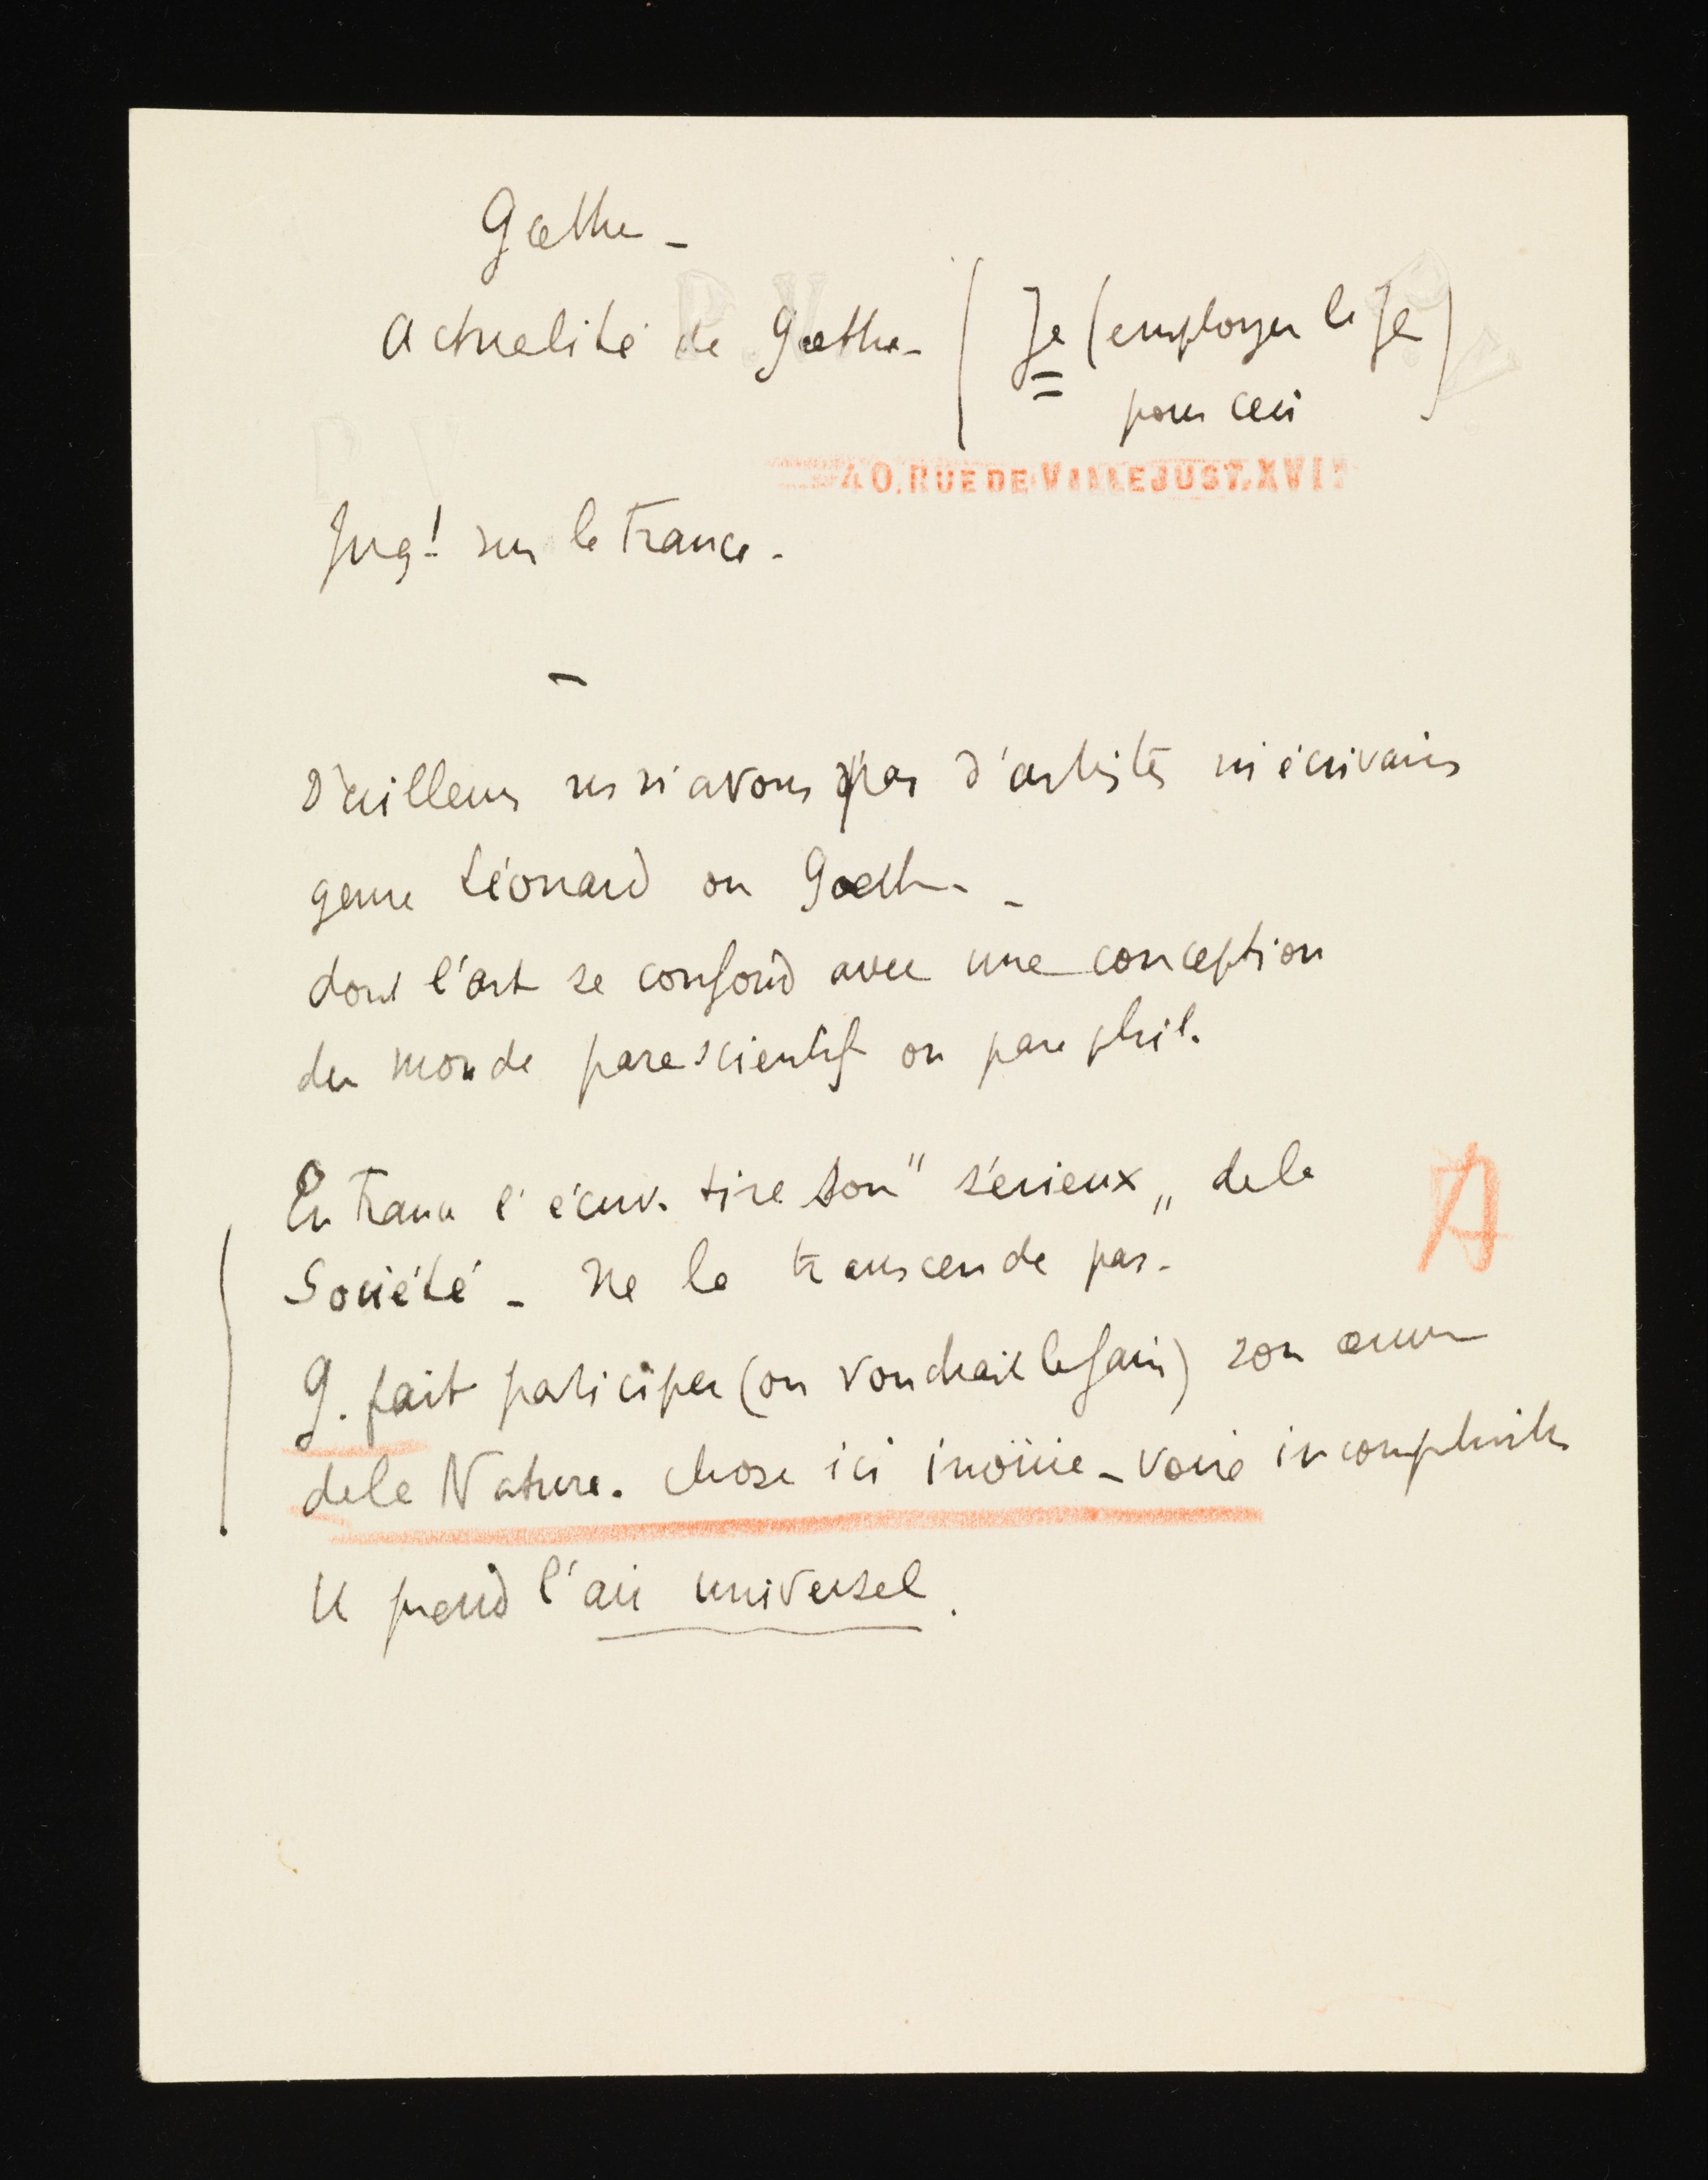 Gœthe -
P.V.
Actualité de Gœthe - ( Je (employer le Je)
pour ceci
40, RUE DE VILLEJUST, XVIE
P.V
Jugt sur la France -
D'ailleurs ns n'avons pas d'artistes ni écrivains
genre Léonard ou Gœthe -
dont l'art se confond avec une conception
du monde parascientif ou para phil.
En France l'écriv. tire son "sérieux" de la
Société - Ne la transcende pas -
A
G. fait participer (ou voudrait le faire) son œuvre
de la Nature. chose ici inouïe - voire incompréhensible
Il prend l'air universel.